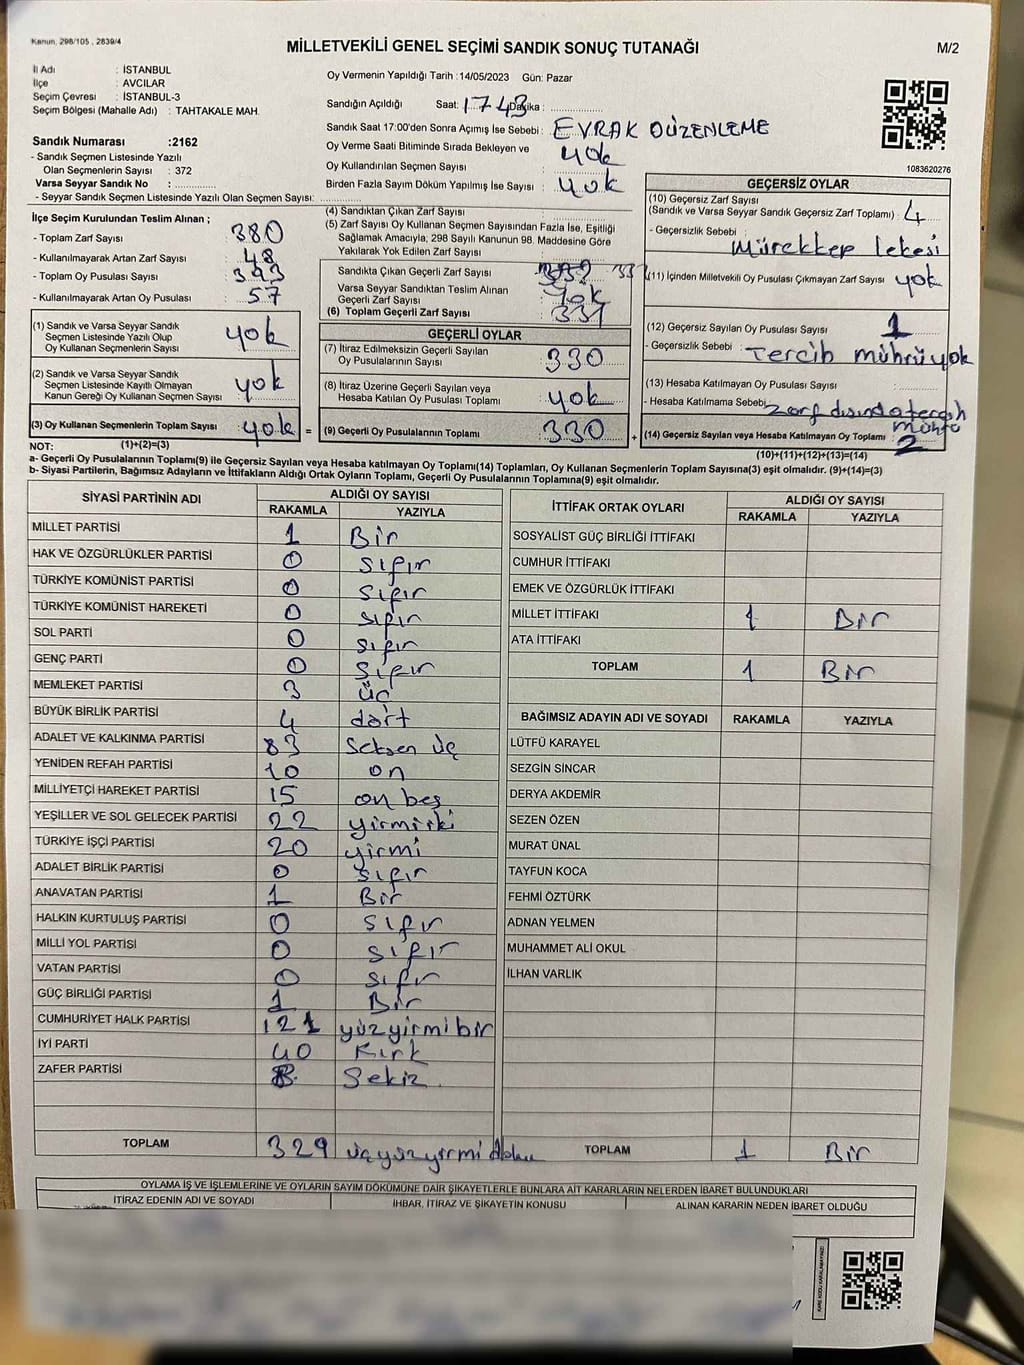 Kanun, 298/105 , 2839/4
MİLLETVEKİLİ GENEL SEÇİMİ SANDIK SONUÇ TUTANAĞI
M/2
İl Adı : İSTANBUL
İlçe : AVCILAR
Seçim Çevresi : İSTANBUL-3
Seçim Bölgesi (Mahalle Adı) : TAHTAKALE MAH.
Sandık Numarası :2162
- Sandık Seçmen Listesinde Yazılı
Olan Seçmenlerin Sayısı : 372
Varsa Seyyar Sandık No :
- Seyyar Sandık Seçmen Listesinde Yazılı Olan Seçmen Sayısı:
Oy Vermenin Yapıldığı Tarih :14/05/2023 Gün: Pazar
Sandığın Açıldığı Saat: 17 43 Dakika :
Sandık Saat 17:00'den Sonra Açımış İse Sebebi : EVRAK DÜZENLEME
Oy Verme Saati Bitiminde Sırada Bekleyen ve
Oy Kullandırılan Seçmen Sayısı : yok
Birden Fazla Sayım Döküm Yapılmış İse Sayısı : yok
1083620276
İlçe Seçim Kurulundan Teslim Alınan ;
- Toplam Zarf Sayısı : 380
- Kullanılmayarak Artan Zarf Sayısı : 48
- Toplam Oy Pusulası Sayısı : 393
- Kullanılmayarak Artan Oy Pusulası : 57
(1) Sandık ve Varsa Seyyar Sandık
Seçmen Listesinde Yazılı Olup
Oy Kullanan Seçmenlerin Sayısı : yok
(2) Sandık ve Varsa Seyyar Sandık
Seçmen Listesinde Kayıtlı Olmayan
Kanun Gereği Oy Kullanan Seçmen Sayısı : yok
(3) Oy Kullanan Seçmenlerin Toplam Sayısı : yok =
(1)+(2)=(3)
(4) Sandıktan Çıkan Zarf Sayısı :
(5) Zarf Sayısı Oy Kullanan Seçmen Sayısından Fazla İse, Eşitliği
Sağlamak Amacıyla; 298 Sayılı Kanunun 98. Maddesine Göre
Yakılarak Yok Edilen Zarf Sayısı :
Sandıkta Çıkan Geçerli Zarf Sayısı : 331
Varsa Seyyar Sandıktan Teslim Alınan
Geçerli Zarf Sayısı : yok
(6) Toplam Geçerli Zarf Sayısı : 331
GEÇERLİ OYLAR
(7) İtiraz Edilmeksizin Geçerli Sayılan
Oy Pusulalarının Sayısı : 330
(8) İtiraz Üzerine Geçerli Sayılan veya
Hesaba Katılan Oy Pusulası Toplamı : yok
(9) Geçerli Oy Pusulalarının Toplamı : 330 +
GEÇERSİZ OYLAR
(10) Geçersiz Zarf Sayısı
(Sandık ve Varsa Seyyar Sandık Geçersiz Zarf Toplamı) : 4
- Geçersizlik Sebebi : Mürekkep lekesi
(11) İçinden Milletvekili Oy Pusulası Çıkmayan Zarf Sayısı : yok
(12) Geçersiz Sayılan Oy Pusulası Sayısı : 1
- Geçersizlik Sebebi : Tercih mührü yok
(13) Hesaba Katılmayan Oy Pusulası Sayısı :
- Hesaba Katılmama Sebebi: zarf dısında tercih
mührü
(14) Geçersiz Sayılan veya Hesaba Katılmayan Oy Toplamı : 2
(10)+(11)+(12)+(13)=(14)
NOT:
a- Geçerli Oy Pusulalarının Toplamı(9) ile Geçersiz Sayılan veya Hesaba katılmayan Oy Toplamı(14) Toplamları, Oy Kullanan Seçmenlerin Toplam Sayısına(3) eşit olmalıdır. (9)+(14)=(3)
b- Siyasi Partilerin, Bağımsız Adayların ve İttifakların Aldığı Oyların Toplamı, Geçerli Oy Pusulalarının Toplamına(9) eşit olmalıdır.
SİYASİ PARTİNİN ADI ALDIĞI OY SAYISI
RAKAMLA YAZIYLA
MİLLET PARTİSİ 1 Bir
HAK VE ÖZGÜRLÜKLER PARTİSİ 0 sıfır
TÜRKİYE KOMÜNİST PARTİSİ 0 sıfır
TÜRKİYE KOMÜNİST HAREKETİ 0 sıfır
SOL PARTİ 0 sıfır
GENÇ PARTİ 0 sıfır
MEMLEKET PARTİSİ 3 üç
BÜYÜK BİRLİK PARTİSİ 4 dört
ADALET VE KALKINMA PARTİSİ 83 Seksen üç
YENİDEN REFAH PARTİSİ 10 on
MİLLİYETÇİ HAREKET PARTİSİ 15 on beş
YEŞİLLER VE SOL GELECEK PARTİSİ 22 yirmi iki
TÜRKİYE İŞÇİ PARTİSİ 20 yirmi
ADALET BİRLİK PARTİSİ 0 sıfır
ANAVATAN PARTİSİ 1 Bir
HALKIN KURTULUŞ PARTİSİ 0 sıfır
MİLLİ YOL PARTİSİ 0 sıfır
VATAN PARTİSİ 0 sıfır
GÜÇ BİRLİĞİ PARTİSİ 1 Bir
CUMHURİYET HALK PARTİSİ 121 yüz yirmi bir
İYİ PARTİ 40 Kırk
ZAFER PARTİSİ 8 Sekiz
TOPLAM 329 üç yüz yirmi dokuz
İTTİFAK ORTAK OYLARI ALDIĞI OY SAYISI
RAKAMLA YAZIYLA
SOSYALİST GÜÇ BİRLİĞİ İTTİFAKI
CUMHUR İTTİFAKI
EMEK VE ÖZGÜRLÜK İTTİFAKI
MİLLET İTTİFAKI 1 Bir
ATA İTTİFAKI
TOPLAM 1 Bir
BAĞIMSIZ ADAYIN ADI VE SOYADI RAKAMLA YAZIYLA
LÜTFÜ KARAYEL
SEZGİN SİNCAR
DERYA AKDEMİR
SEZEN ÖZEN
MURAT ÜNAL
TAYFUN KOCA
FEHMİ ÖZTÜRK
ADNAN YELMEN
MUHAMMET ALİ OKUL
İLHAN VARLIK
TOPLAM 1 Bir
OYLAMA İŞ VE İŞLEMLERİNE VE OYLARIN SAYIM DÖKÜMÜNE DAİR ŞİKAYETLERLE BUNLARA AİT KARARLARIN NELERDEN İBARET BULUNDUKLARI
İTİRAZ EDENİN ADI VE SOYADI İHBAR, İTİRAZ VE ŞİKAYETİN KONUSU ALINAN KARARIN NEDEN İBARET OLDUĞU
KARE KODU KARALAMAYINIZ!